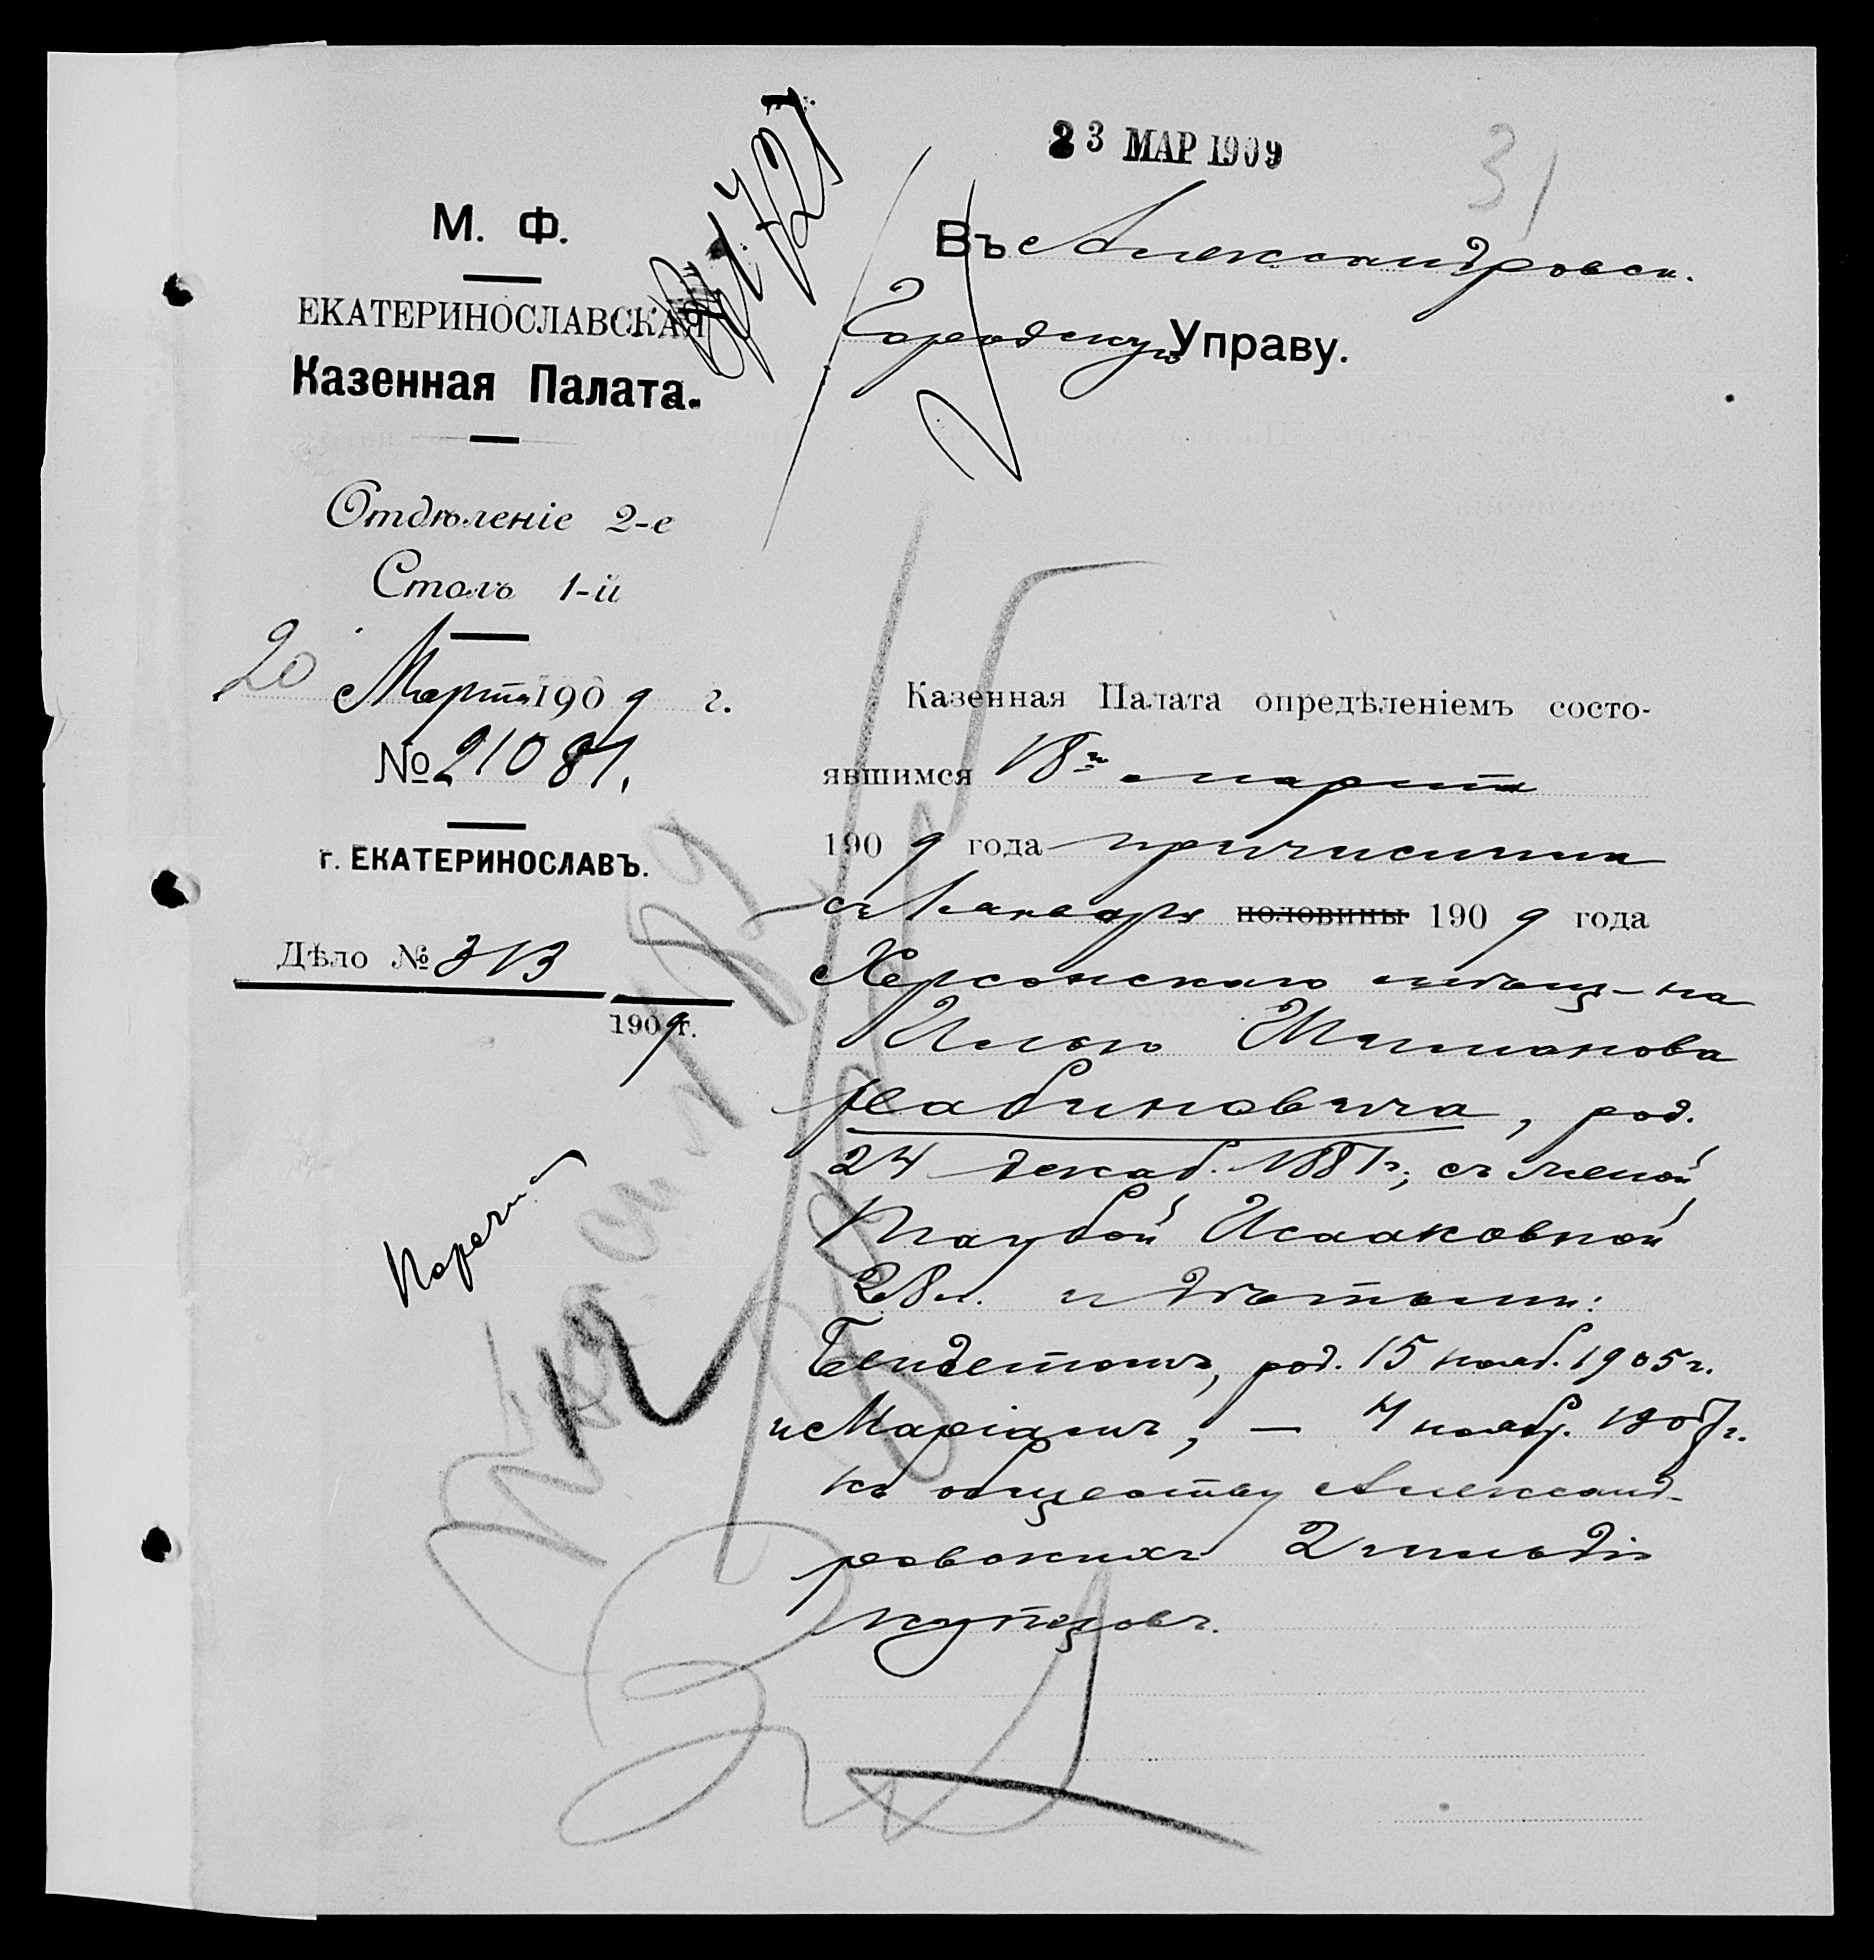 23 МАР 1909
31
Вх. 1721
М. Ф.
ЕКАТЕРИНОСЛАВСКАЯ
Казенная Палата.
Отдѣленіе 2-е
Столъ 1-й
20 Марта 1909 г.
№ 21081.
г. ЕКАТЕРИНОСЛАВЪ.
Дѣло № 313
1909 г.
Въ Александровск.
Городскую Управу.
Казенная Палата опредѣленіемъ состо-
явшимся 18го марта
1909 года причислила
съ 1 января половины 1909 года
Херсонскаго мѣщ-на
Илью Шимонова
Рабиновича, род.
24 декаб. 1881 г., съ женой
Таубой Исааковной
28 л. и дѣтьми:
Бендетомъ, род. 15 нояб. 1905 г.
и Маріамъ, — 4 нояб. 1907 г.
къ обществу Александ-
ровскихъ 2 гильдіи
купцовъ.